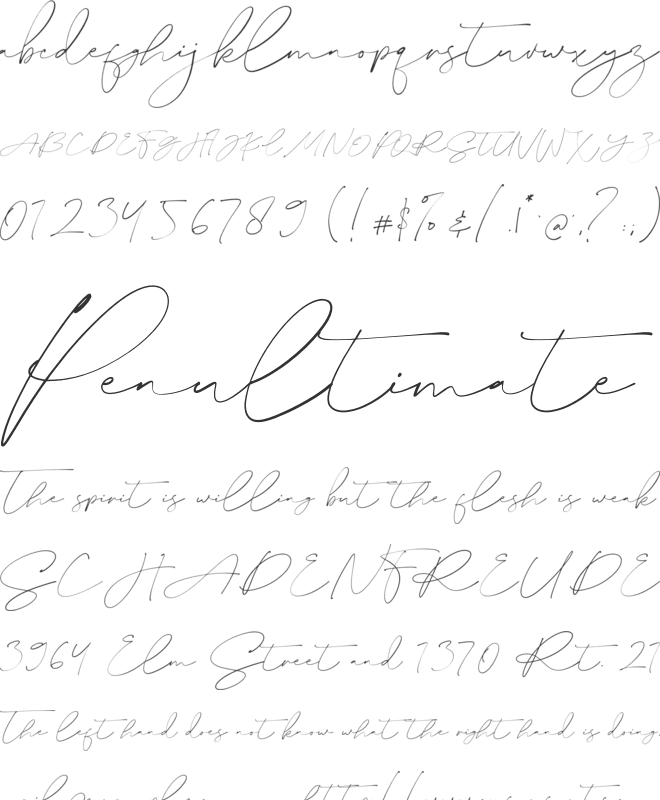 abcdefghijklmnopqrstuvwxyz
ABCDEFGHIJKLMNOPQRSTUVWXYZ
0123456789 (!#$%&/.|*·@¿?:;)
Penultimate
The spirit is willing but the flesh is weak
SCHADENFREUDE
3964 Elm Street and 1370 Rt. 21
The left hand does not know what the right hand is doing.